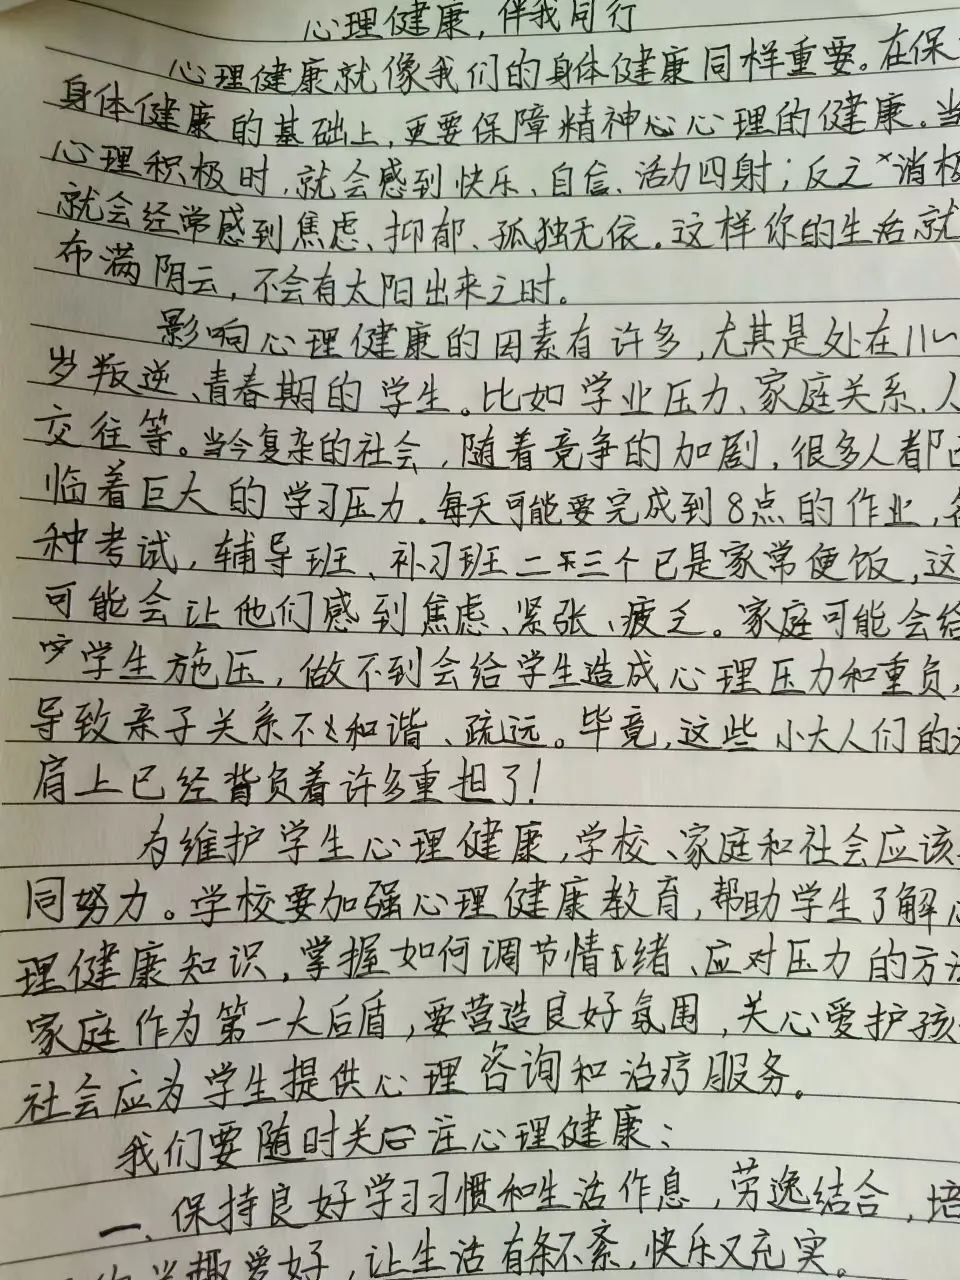 心理健康,伴我同行
心理健康就像我们的身体健康同样重要。在保
身体健康的基础上,更要保障精神心理的健康。当
心理积极时,就会感到快乐、自信、活力四射;反之消极
就会经常感到焦虑、抑郁、孤独无依。这样你的生活就
布满阴云,不会有太阳出来之时。
影响心理健康的因素有许多,尤其是处在11~
岁叛逆、青春期的学生。比如学业压力、家庭关系、人
交往等。当今复杂的社会,随着竞争的加剧,很多人都
临着巨大的学习压力。每天可能要完成到8点的作业,各
种考试,辅导班、补习班二三个已是家常便饭,这
可能会让他们感到焦虑、紧张、疲乏。家庭可能会给
学生施压,做不到会给学生造成心理压力和重负,
导致亲子关系不和谐、疏远。毕竟,这些小大人们的
肩上已经背负着许多重担了!
为维护学生心理健康,学校、家庭和社会应该
同努力。学校要加强心理健康教育,帮助学生了解心
理健康知识,掌握如何调节情绪、应对压力的方法
家庭作为第一大后盾,要营造良好氛围,关心爱护孩
社会应为学生提供心理咨询和治疗服务。
我们要随时关注心理健康:
一、保持良好学习习惯和生活作息,劳逸结合,培
兴趣爱好,让生活有条不紊,快乐又充实。